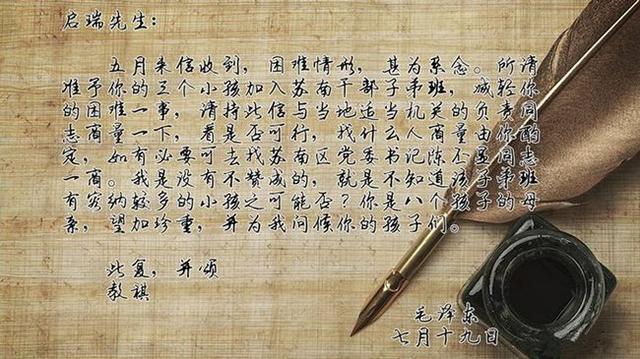 启瑞先生：
五月来信收到，困难情形，甚为系念。所请
准予你的三个小孩加入苏南干部子弟班，减轻你
的困难一事，请持此信与当地适当机关的负责同
志商量一下，看是否可行，找什么人商量由你酌
定，如有必要可去找苏南区党委书记陈丕显同志
一商。我是没有不赞成的，就是不知道该子弟班
有容纳较多的小孩之可能否？你是八个孩子的母
亲，望加珍重，并为我问候你的孩子们。
此复，并颂
教祺
毛泽东
七月十九日